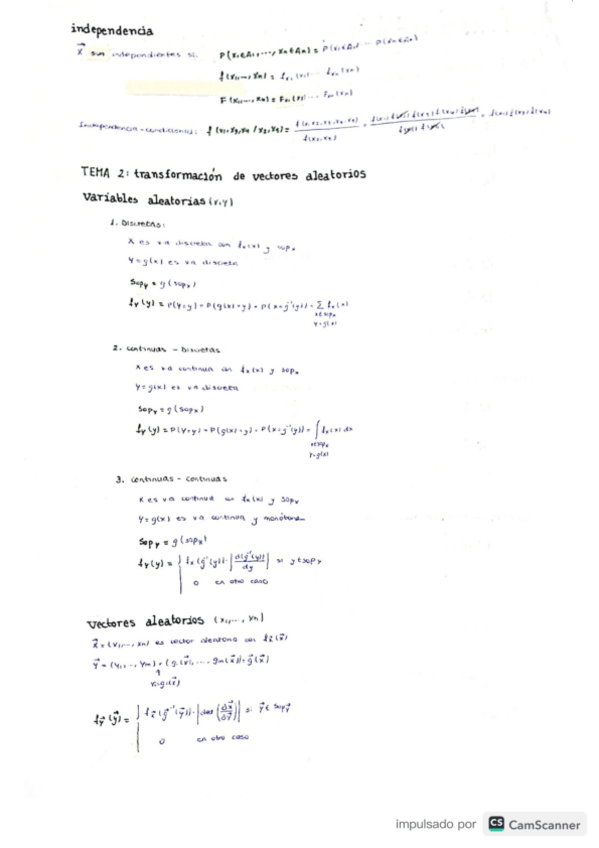 independencia
X⃗ son independientes si: P(x₁∈A₁,..., xₙ∈Aₙ) = P(x₁∈A₁) ... P(xₙ∈Aₙ)
f(x₁,..., xₙ) = fₓ₁(x₁) ... fₓₙ(xₙ)
F(x₁,..., xₙ) = Fₓ₁(x₁) ... Fₓₙ(xₙ)
Independencia condicional: f(x₁,x₃,x₄ / x₂,x₅) =
TEMA 2: transformación de vectores aleatorios
Variables aleatorias (x,y)
1. Discretas:
X es va discreta con fₓ(x) y sopₓ
Y = g(x) es va discreta
Sopᵧ = g(sopₓ)
fᵧ(y) = P(Y=y) = P(g(x)=y) = P(x=g⁻¹(y)) = Σ fₓ(x)
x∈sopₓ
y=g(x)
2. continuas - Discretas
X es va continua con fₓ(x) y sopₓ
Y = g(x) es va discreta
Sopᵧ = g(sopₓ)
fᵧ(y) = P(Y=y) = P(g(x)=y) = P(x=g⁻¹(y)) = ∫ fₓ(x) dx
x∈sopₓ
y=g(x)
3. continuas - continuas
X es va continua con fₓ(x) y sopₓ
Y = g(x) es va continua y monótona
Sopᵧ = g(sopₓ)
fᵧ(y) = { fₓ(g⁻¹(y)) · |d(g⁻¹(y))/dy| si y∈sopᵧ
0 en otro caso
Vectores aleatorios (x₁,..., xₙ)
X⃗ = (x₁,..., xₙ) es vector aleatorio con fₓ⃗(x⃗)
Y⃗ = (y₁,..., yₘ) = (g₁(x⃗),..., gₘ(x⃗)) = g⃗(x⃗)
y₁=g₁(x⃗)
fᵧ⃗(y⃗) = { fₓ⃗(g⃗⁻¹(y⃗)) · |det(∂x⃗/∂y⃗)| si y⃗∈sopᵧ⃗
0 en otro caso
impulsado por CS CamScanner